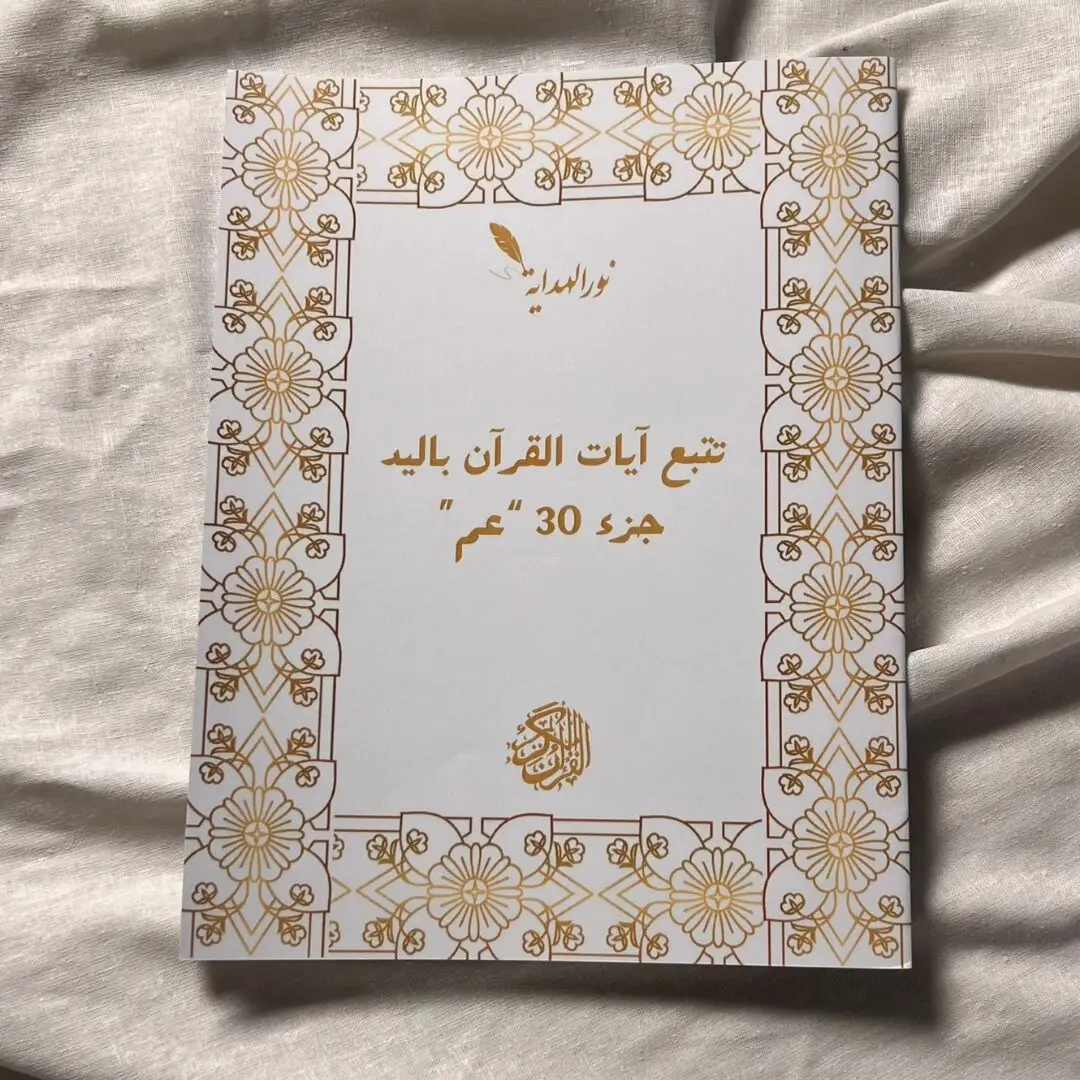 نور الهداية
تتبع آيات القرآن باليد
جزء 30 “عم"
القرآن الكريم